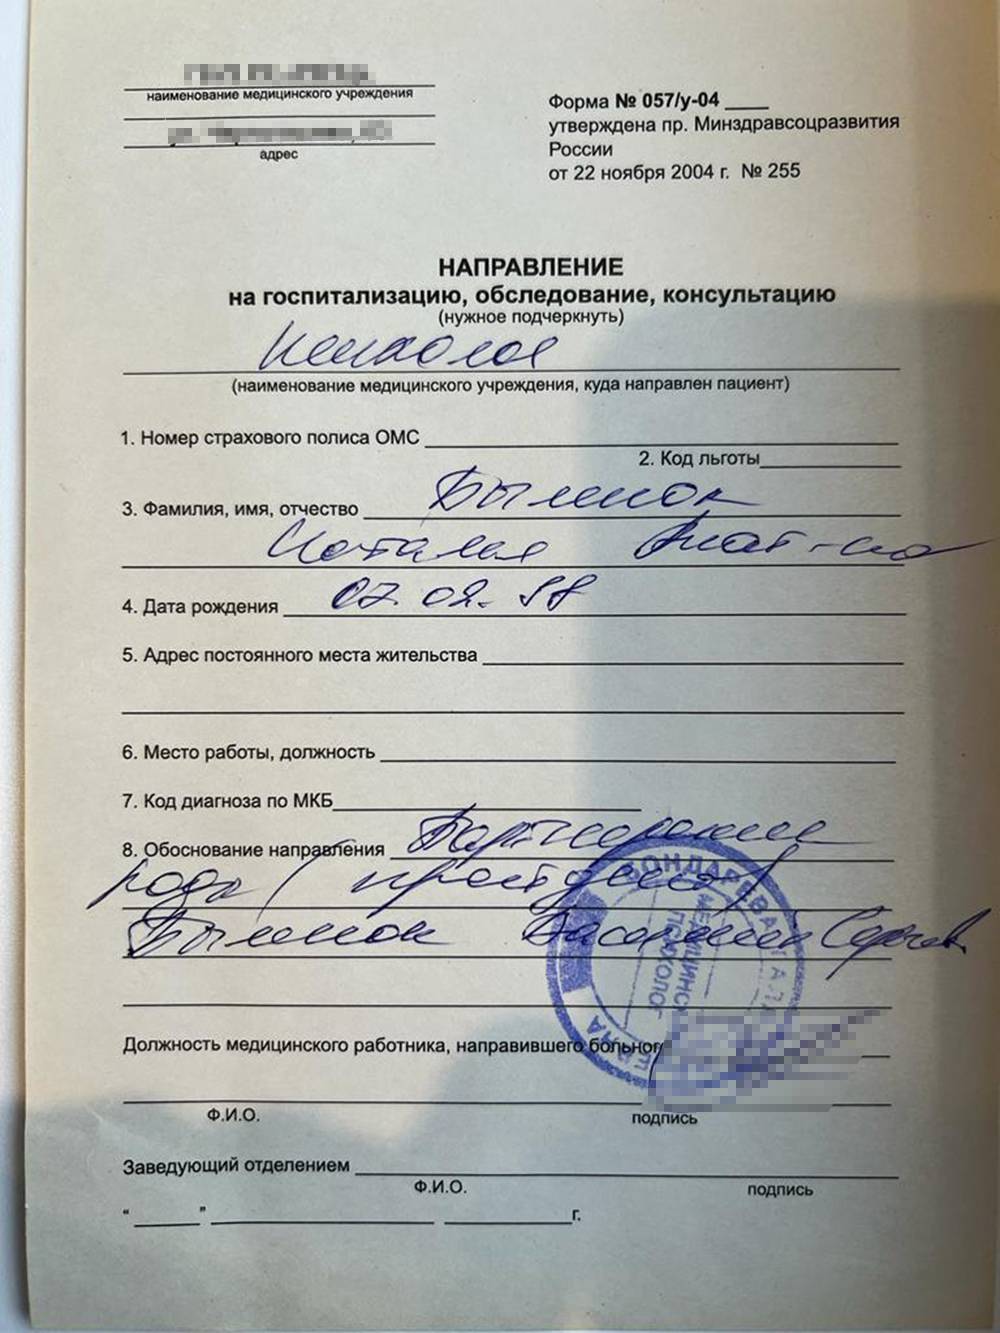 наименование медицинского учреждения
адрес
Форма № 057/у-04 ____
утверждена пр. Минздравсоцразвития
России
от 22 ноября 2004 г. № 255
НАПРАВЛЕНИЕ
на госпитализацию, обследование, консультацию
(нужное подчеркнуть)
Психолог
(наименование медицинского учреждения, куда направлен пациент)
1. Номер страхового полиса ОМС
2. Код льготы
3. Фамилия, имя, отчество
Наталья
4. Дата рождения 07.02.98
5. Адрес постоянного места жительства
6. Место работы, должность
7. Код диагноза по МКБ
8. Обоснование направления Партнерские
роды
БОНДАРЕВА
МЕДИЦИНС
ПСИХОЛОГ
Должность медицинского работника, направившего больног
Ф.И.О. подпись
Заведующий отделением
Ф.И.О. подпись
“ ” г.